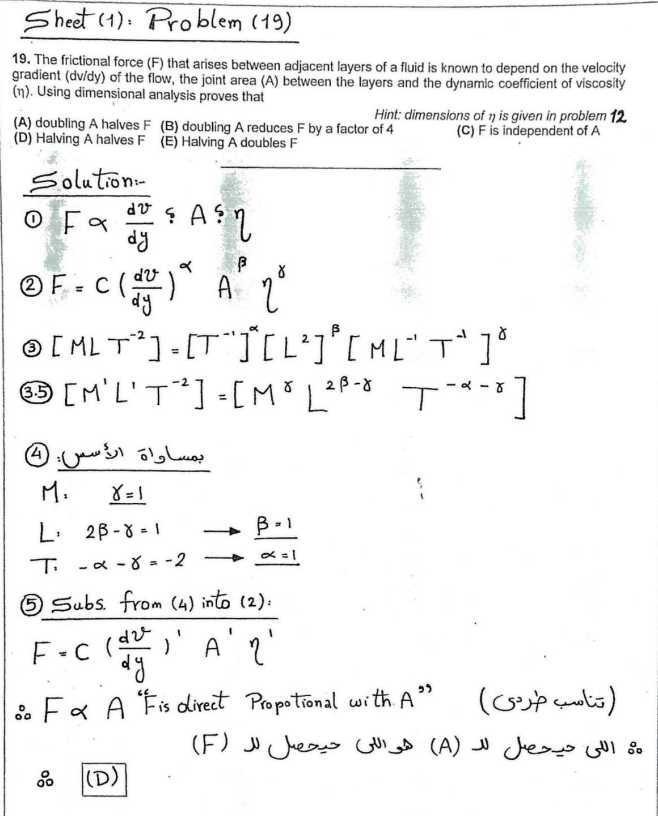 Sheet (1): Problem (19)
19. The frictional force (F) that arises between adjacent layers of a fluid is known to depend on the velocity
gradient (dv/dy) of the flow, the joint area (A) between the layers and the dynamic coefficient of viscosity
(η). Using dimensional analysis proves that
Hint: dimensions of η is given in problem 12
(A) doubling A halves F (B) doubling A reduces F by a factor of 4 (C) F is independent of A
(D) Halving A halves F (E) Halving A doubles F
Solution:-
① F ∝ dv/dy ; A ; η
② F = C (dv/dy)^α A^β η^γ
③ [MLT⁻²] = [T⁻¹]^α [L²]^β [ML⁻¹T⁻¹]^γ
(3.5) [M¹L¹T⁻²] = [M^γ L^(2β-γ) T^(-α-γ)]
④ بمساواة الأسس:
M: γ=1
L: 2β-γ=1 → β=1
T: -α-γ=-2 → α=1
⑤ Subs. from (4) into (2):
F=C (dv/dy)¹ A¹ η¹
∴ F ∝ A "F is direct Propotional with A" (تناسب طردى)
∴ اللى حيحصل لل (A) هو اللى حيحصل لل (F)
∴ (D)